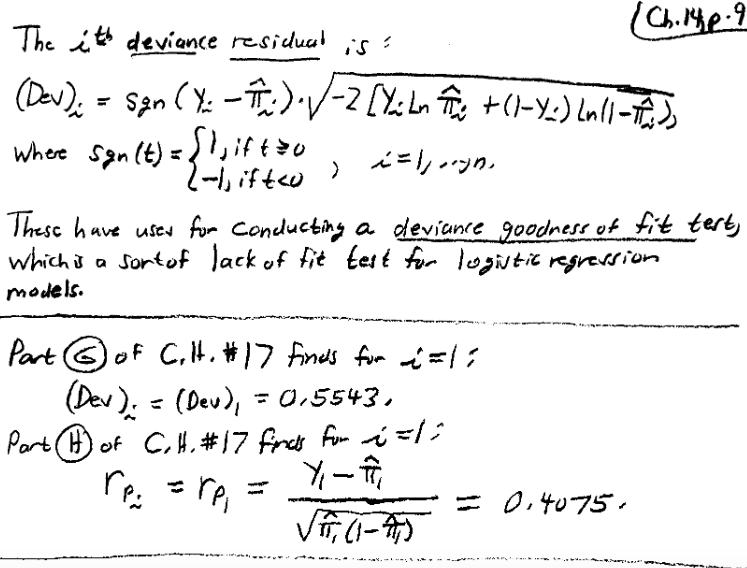 Ch.14, p.9
The ith deviance residual is:
(Dev)i = sgn(Yi − π̂i)·√−2[Yi Ln π̂i + (1−Yi) Ln(1−π̂i)],
where sgn(t) = {1, if t ≥ 0
{−1, if t<0 , i=1,...,n.
These have uses for conducting a deviance goodness of fit test,
which is a sort of lack of fit test for logistic regression
models.
Part (G) of C.H. #17 finds for i=1:
(Dev)i = (Dev)1 = 0.5543.
Part (H) of C.H. #17 finds for i=1:
rPi = rP1 = (Y1 − π̂1) / √π̂1(1−π̂1) = 0.4075.